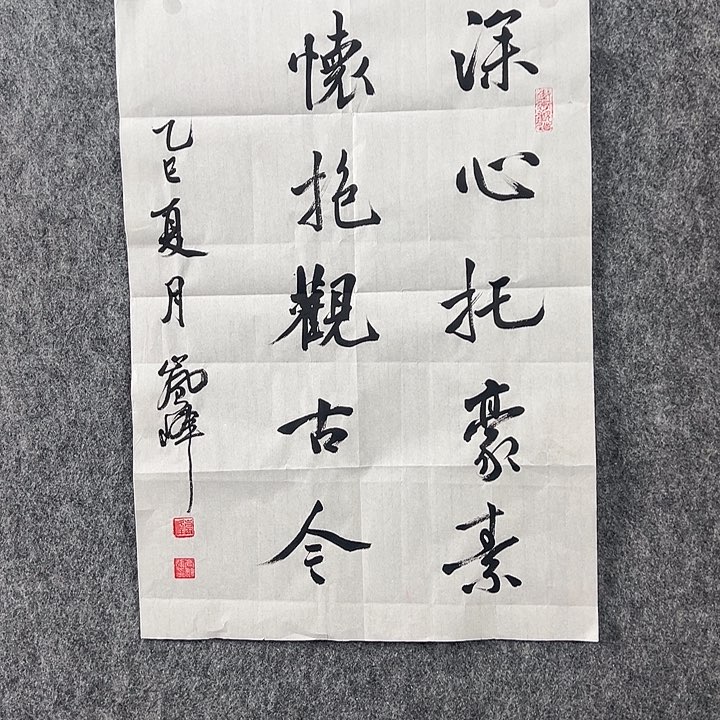 深心托豪素
懷抱觀古今
乙巳夏月嵐